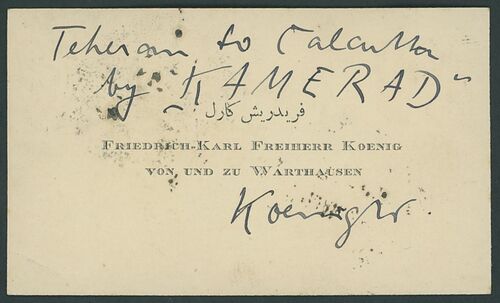 Teheran to Calcutta
by "KAMERAD"
فریدریش کارل
FRIEDRICH-KARL FREIHERR KOENIG
VON UND ZU WARTHAUSEN
Koenig W.